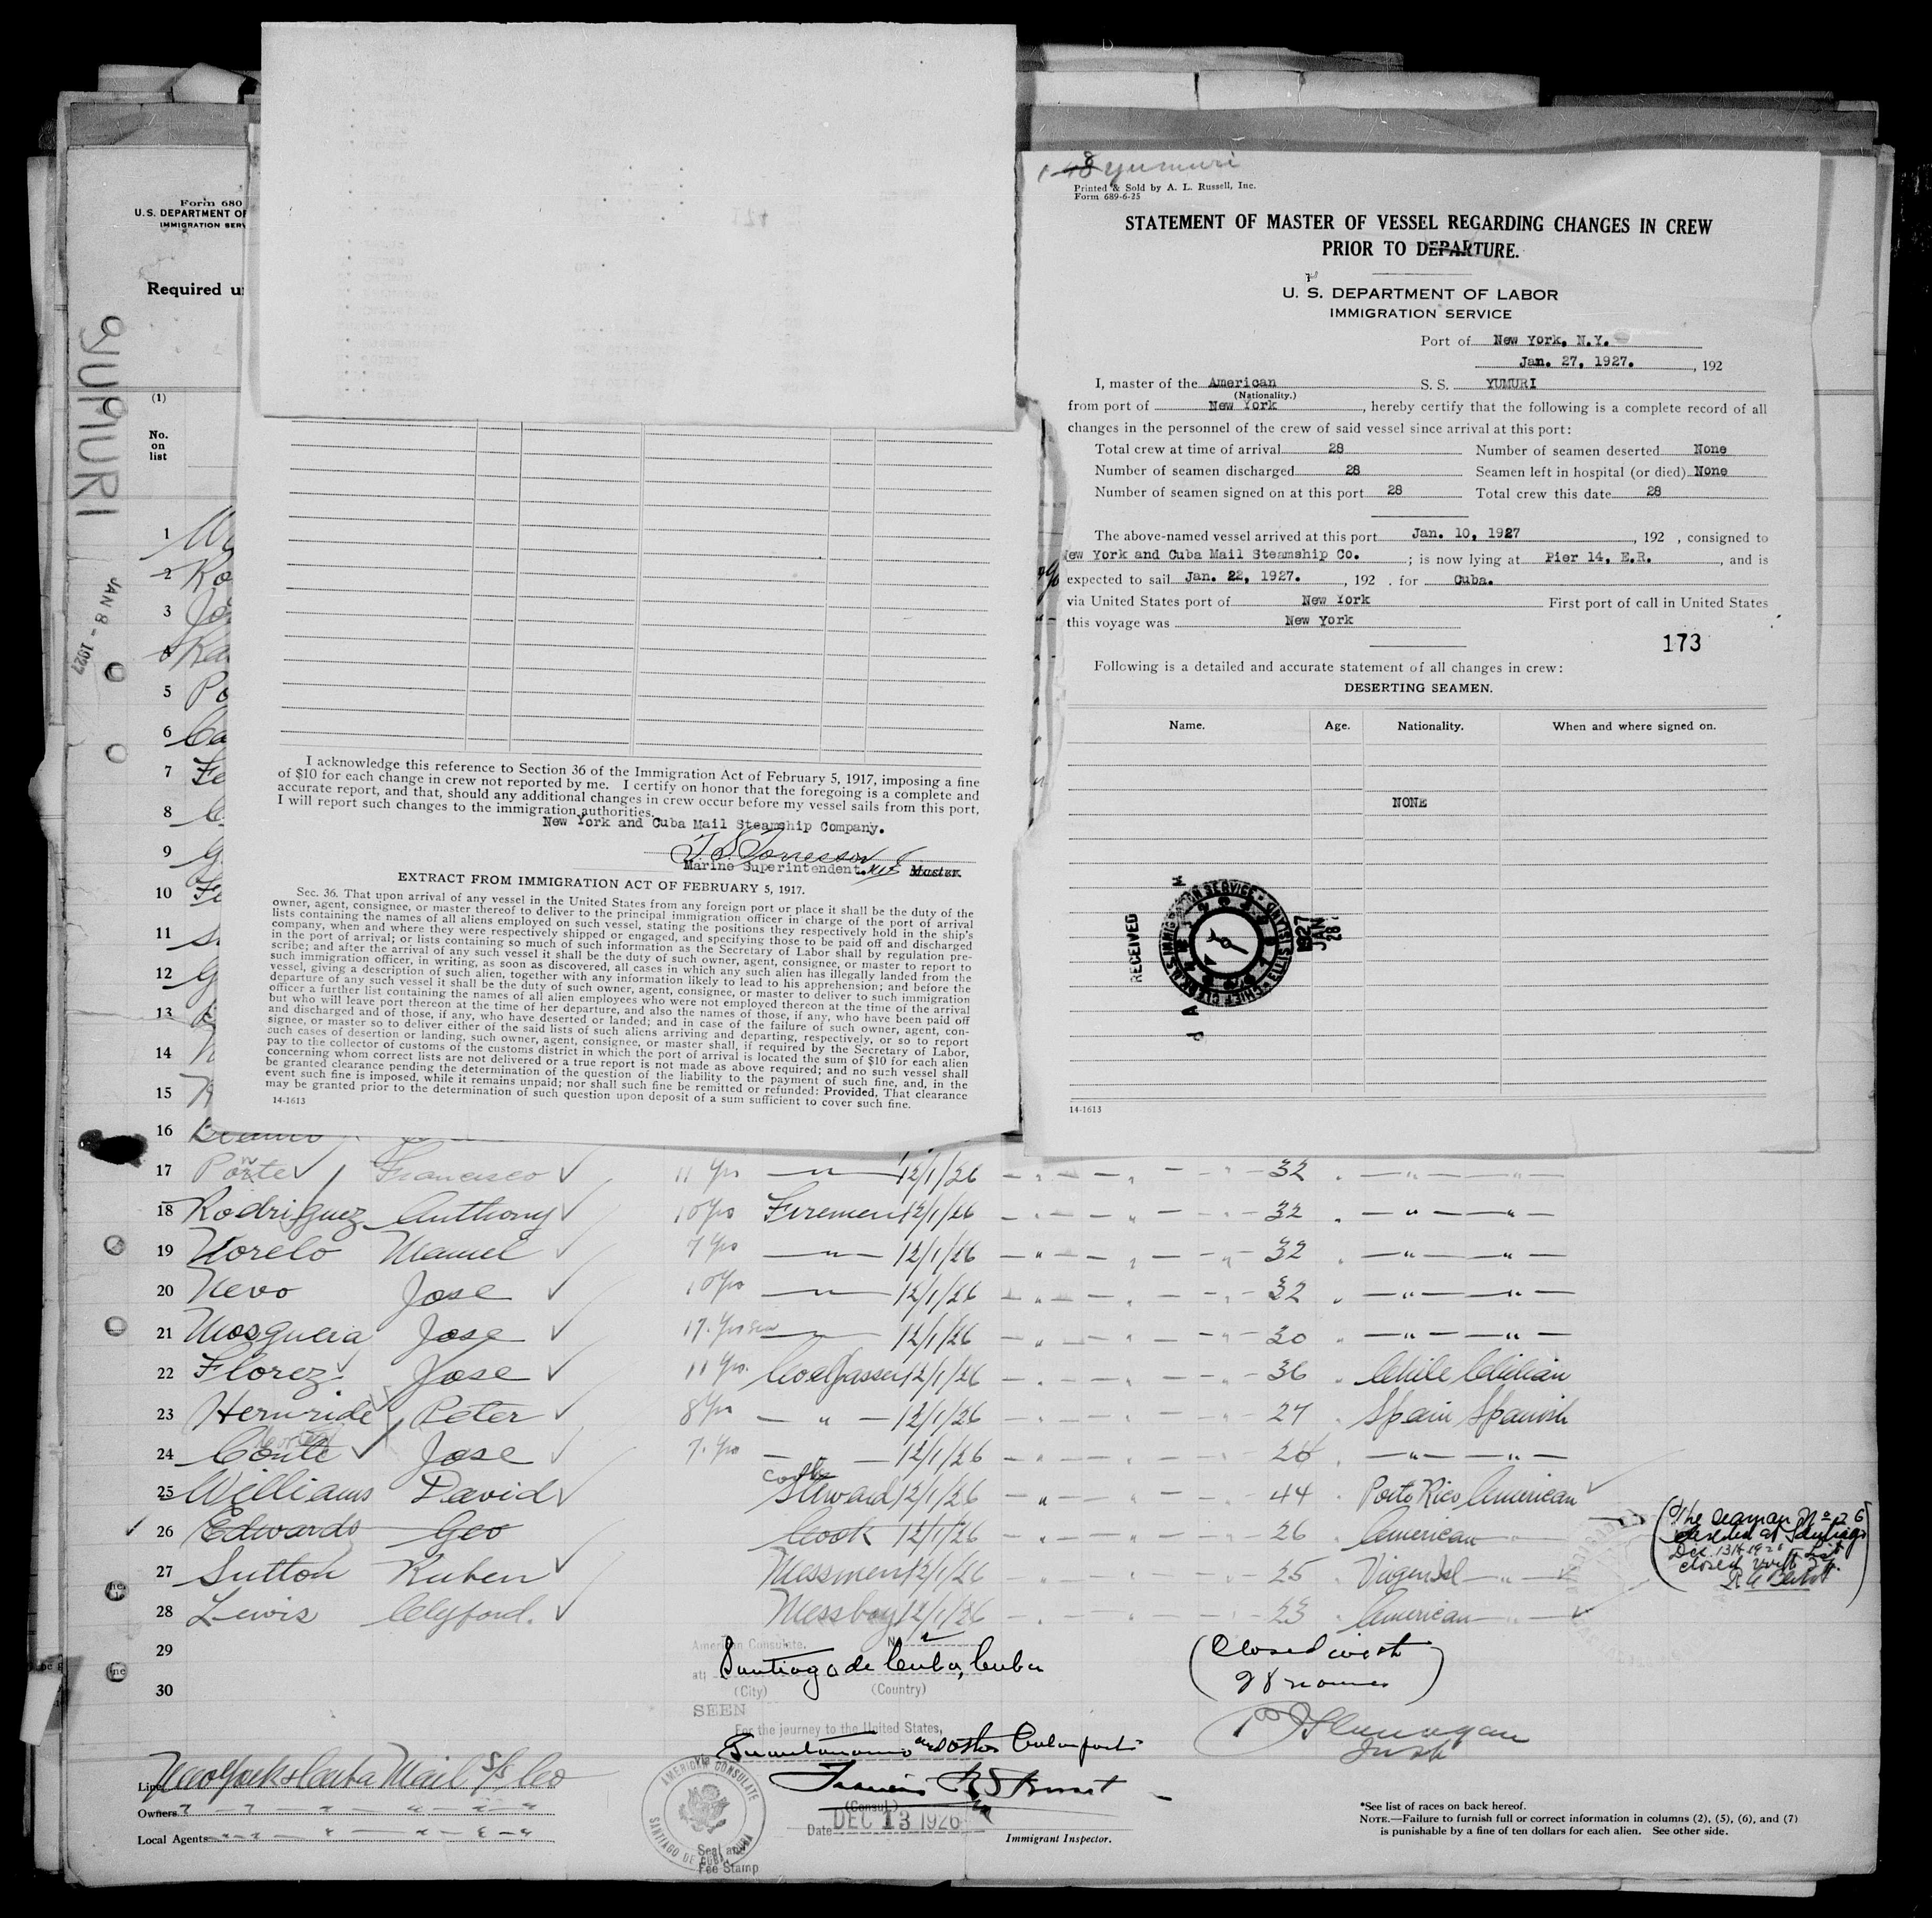 Form 680
U.S. DEPARTMENT OF
IMMIGRATION SERV
Required u
YUMURI
JAN 8 - 1927
(1)
No.
on
list
1
2 Ro
3 Jo
4 Ka
5 Po
6 Ca
7 Fe
8
9 G
10 Fe
11
12 G
13
14
15
16
I acknowledge this reference to Section 36 of the Immigration Act of February 5, 1917, imposing a fine
of $10 for each change in crew not reported by me. I certify on honor that the foregoing is a complete and
accurate report, and that, should any additional changes in crew occur before my vessel sails from this port,
I will report such changes to the immigration authorities.
New York and Cuba Mail Steamship Company.
Marine Superintendent. Master.
EXTRACT FROM IMMIGRATION ACT OF FEBRUARY 5, 1917.
Sec. 36. That upon arrival of any vessel in the United States from any foreign port or place it shall be the duty of the
owner, agent, consignee, or master thereof to deliver to the principal immigration officer in charge of the port of arrival
lists containing the names of all aliens employed on such vessel, stating the positions they respectively hold in the ship's
company, when and where they were respectively shipped or engaged, and specifying those to be paid off and discharged
in the port of arrival; or lists containing so much of such information as the Secretary of Labor shall by regulation pre-
scribe; and after the arrival of any such vessel it shall be the duty of such owner, agent, consignee, or master to report to
such immigration officer, in writing, as soon as discovered, all cases in which any such alien has illegally landed from the
vessel, giving a description of such alien, together with any information likely to lead to his apprehension; and before the
departure of any such vessel it shall be the duty of such owner, agent, consignee, or master to deliver to such immigration
officer a further list containing the names of all alien employees who were not employed thereon at the time of the arrival
but who will leave port thereon at the time of her departure, and also the names of those, if any, who have been paid off
and discharged and of those, if any, who have deserted or landed; and in case of the failure of such owner, agent, con-
signee, or master so to deliver either of the said lists of such aliens arriving and departing, respectively, or so to report
such cases of desertion or landing, such owner, agent, consignee, or master shall, if required by the Secretary of Labor,
pay to the collector of customs of the customs district in which the port of arrival is located the sum of $10 for each alien
concerning whom correct lists are not delivered or a true report is not made as above required; and no such vessel shall
be granted clearance pending the determination of the question of the liability to the payment of such fine, and, in the
event such fine is imposed, while it remains unpaid; nor shall such fine be remitted or refunded: Provided, That clearance
may be granted prior to the determination of such question upon deposit of a sum sufficient to cover such fine.
14-1613
Yumuri
Printed & Sold by A. L. Russell, Inc.
Form 689-6-25
STATEMENT OF MASTER OF VESSEL REGARDING CHANGES IN CREW
PRIOR TO DEPARTURE.
U. S. DEPARTMENT OF LABOR
IMMIGRATION SERVICE
Port of New York, N.Y.
Jan. 27, 1927. , 192
I, master of the American S. S. YUMURI
(Nationality.)
from port of New York , hereby certify that the following is a complete record of all
changes in the personnel of the crew of said vessel since arrival at this port:
Total crew at time of arrival 28 Number of seamen deserted None
Number of seamen discharged 28 Seamen left in hospital (or died) None
Number of seamen signed on at this port 28 Total crew this date 28
The above-named vessel arrived at this port Jan. 10, 1927 , 192 , consigned to
New York and Cuba Mail Steamship Co. ; is now lying at Pier 14, E.R. , and is
expected to sail Jan. 22, 1927. , 192 . for Cuba.
via United States port of New York First port of call in United States
this voyage was New York
173
Following is a detailed and accurate statement of all changes in crew:
DESERTING SEAMEN.
Name. Age. Nationality. When and where signed on.
NONE
RECEIVED
U.S. IMMIGRATION SERVICE
CHIEF
ELLIS ISLAND
1927
JAN
28
14-1613
17 Porte Francisco 11 yrs — " — 12/1/26 32 — " — " —
18 Rodriguez Anthony 10 yrs Firemen 12/1/26 32 — " — " —
19 Manuel 7 yrs — " — 12/1/26 32 — " — " —
20 Nevo Jose 10 yrs — " — 12/1/26 32 — " — " —
21 Mosqueia Jose 17 yrs — 12/1/26 30 — " — " —
22 Florez Jose 11 yrs. Coal passer 12/1/26 36 Chile Chilian
23 Peter 8 yrs — " — 12/1/26 27 Spain Spanish
24 Conte Jose 7 yrs — " — 12/1/26 26 — " — " —
25 Williams David Steward 12/1/26 44 Porto Rico American
26 Edwards Geo Cook 12/1/26 26 American
27 Sutton Ruben Messmen 12/1/26 25 Virgen Isl — " —
28 Lewis Clyford. Messboy 12/1/26 23 American — " —
29
30
The seaman No 26
deserted at Santiago
Dec. 13th 1926 List
closed with 27.
American Consulate. No 2
at Santiago de Cuba, Cuba
(City) (Country)
SEEN
For the journey to the United States,
via Guantanamo and other Cuban ports
(Consul.)
Date DEC 13 1926
AMERICAN CONSULATE
SANTIAGO DE CUBA, CUBA
Seal and
Fee Stamp
Immigrant Inspector.
(Closed with
28 names)
Line New York & Cuba Mail S/S Co
Owners " — " — " — " — " — "
Local Agents " — " — " — " — " — "
*See list of races on back hereof.
NOTE.—Failure to furnish full or correct information in columns (2), (5), (6), and (7)
is punishable by a fine of ten dollars for each alien. See other side.